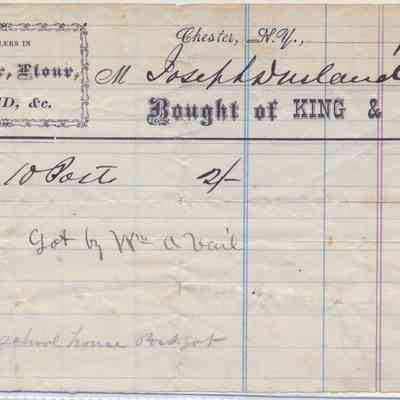 LERS IN
Flour,
D, &c.
Chester, N.Y.,
M Joseph Durland
Bought of KING &
10 Post 2/-
Got by Wm A Vail
school house